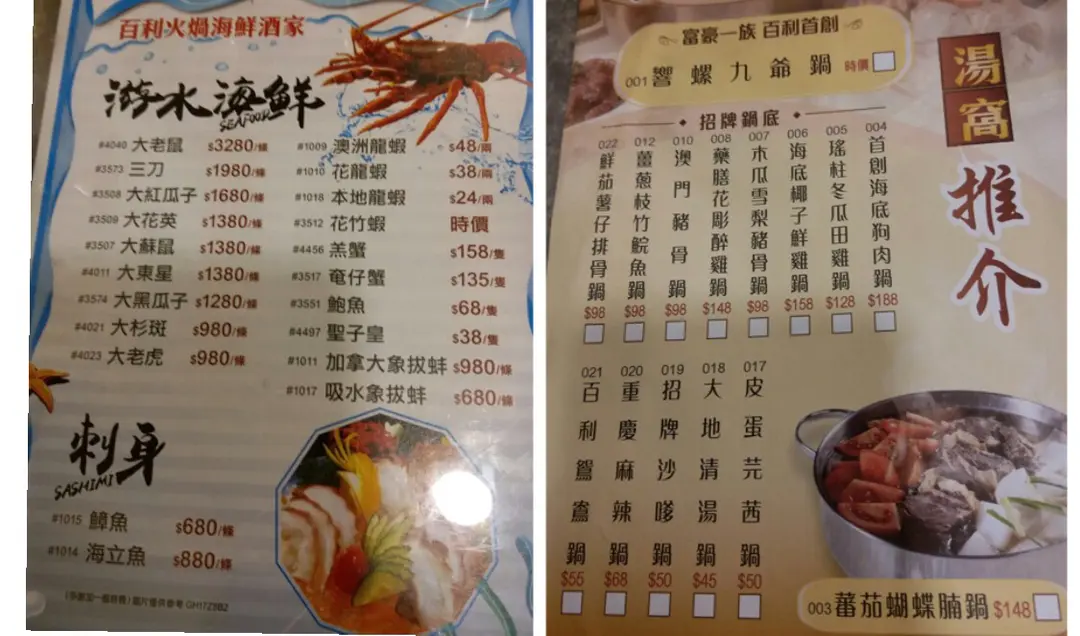 百利火煱海鮮酒家
游水海鮮
SEAFOOD
#4040 大老鼠 $3280/條
#3573 三刀 $1980/條
#3508 大紅瓜子 $1680/條
#3509 大花英 $1380/條
#3507 大蘇鼠 $1380/條
#4011 大東星 $1380/條
#3574 大黑瓜子 $1280/條
#4021 大杉斑 $980/條
#4023 大老虎 $980/條
#1009 澳洲龍蝦 $48/兩
#1010 花龍蝦 $38/兩
#1018 本地龍蝦 $24/兩
#3512 花竹蝦 時價
#4456 羔蟹 $158/隻
#3517 奄仔蟹 $135/隻
#3551 鮑魚 $68/隻
#4497 聖子皇 $38/隻
#1011 加拿大象拔蚌 $980/條
#1017 吸水象拔蚌 $680/條
刺身
SASHIMI
#1015 鱆魚 $680/條
#1014 海立魚 $880/條
富豪一族 百利首創
001 響螺九爺鍋 時價
湯窩
推介
招牌鍋底
004 首創海底狗肉鍋 $188
005 瑤柱冬瓜田雞鍋 $128
006 海底椰子鮮雞鍋 $158
007 木瓜雪梨豬骨鍋 $98
008 藥膳花彫醉雞鍋 $148
010 澳門豬骨鍋 $98
012 薑蔥枝竹鯇魚鍋 $98
022 鮮茄薯仔排骨鍋 $98
017 皮蛋芫茜鍋 $50
018 大地清湯鍋 $45
019 招牌沙嗲鍋 $50
020 重慶麻辣鍋 $68
021 百利鴛鴦鍋 $55
003 蕃茄蝴蝶腩鍋 $148